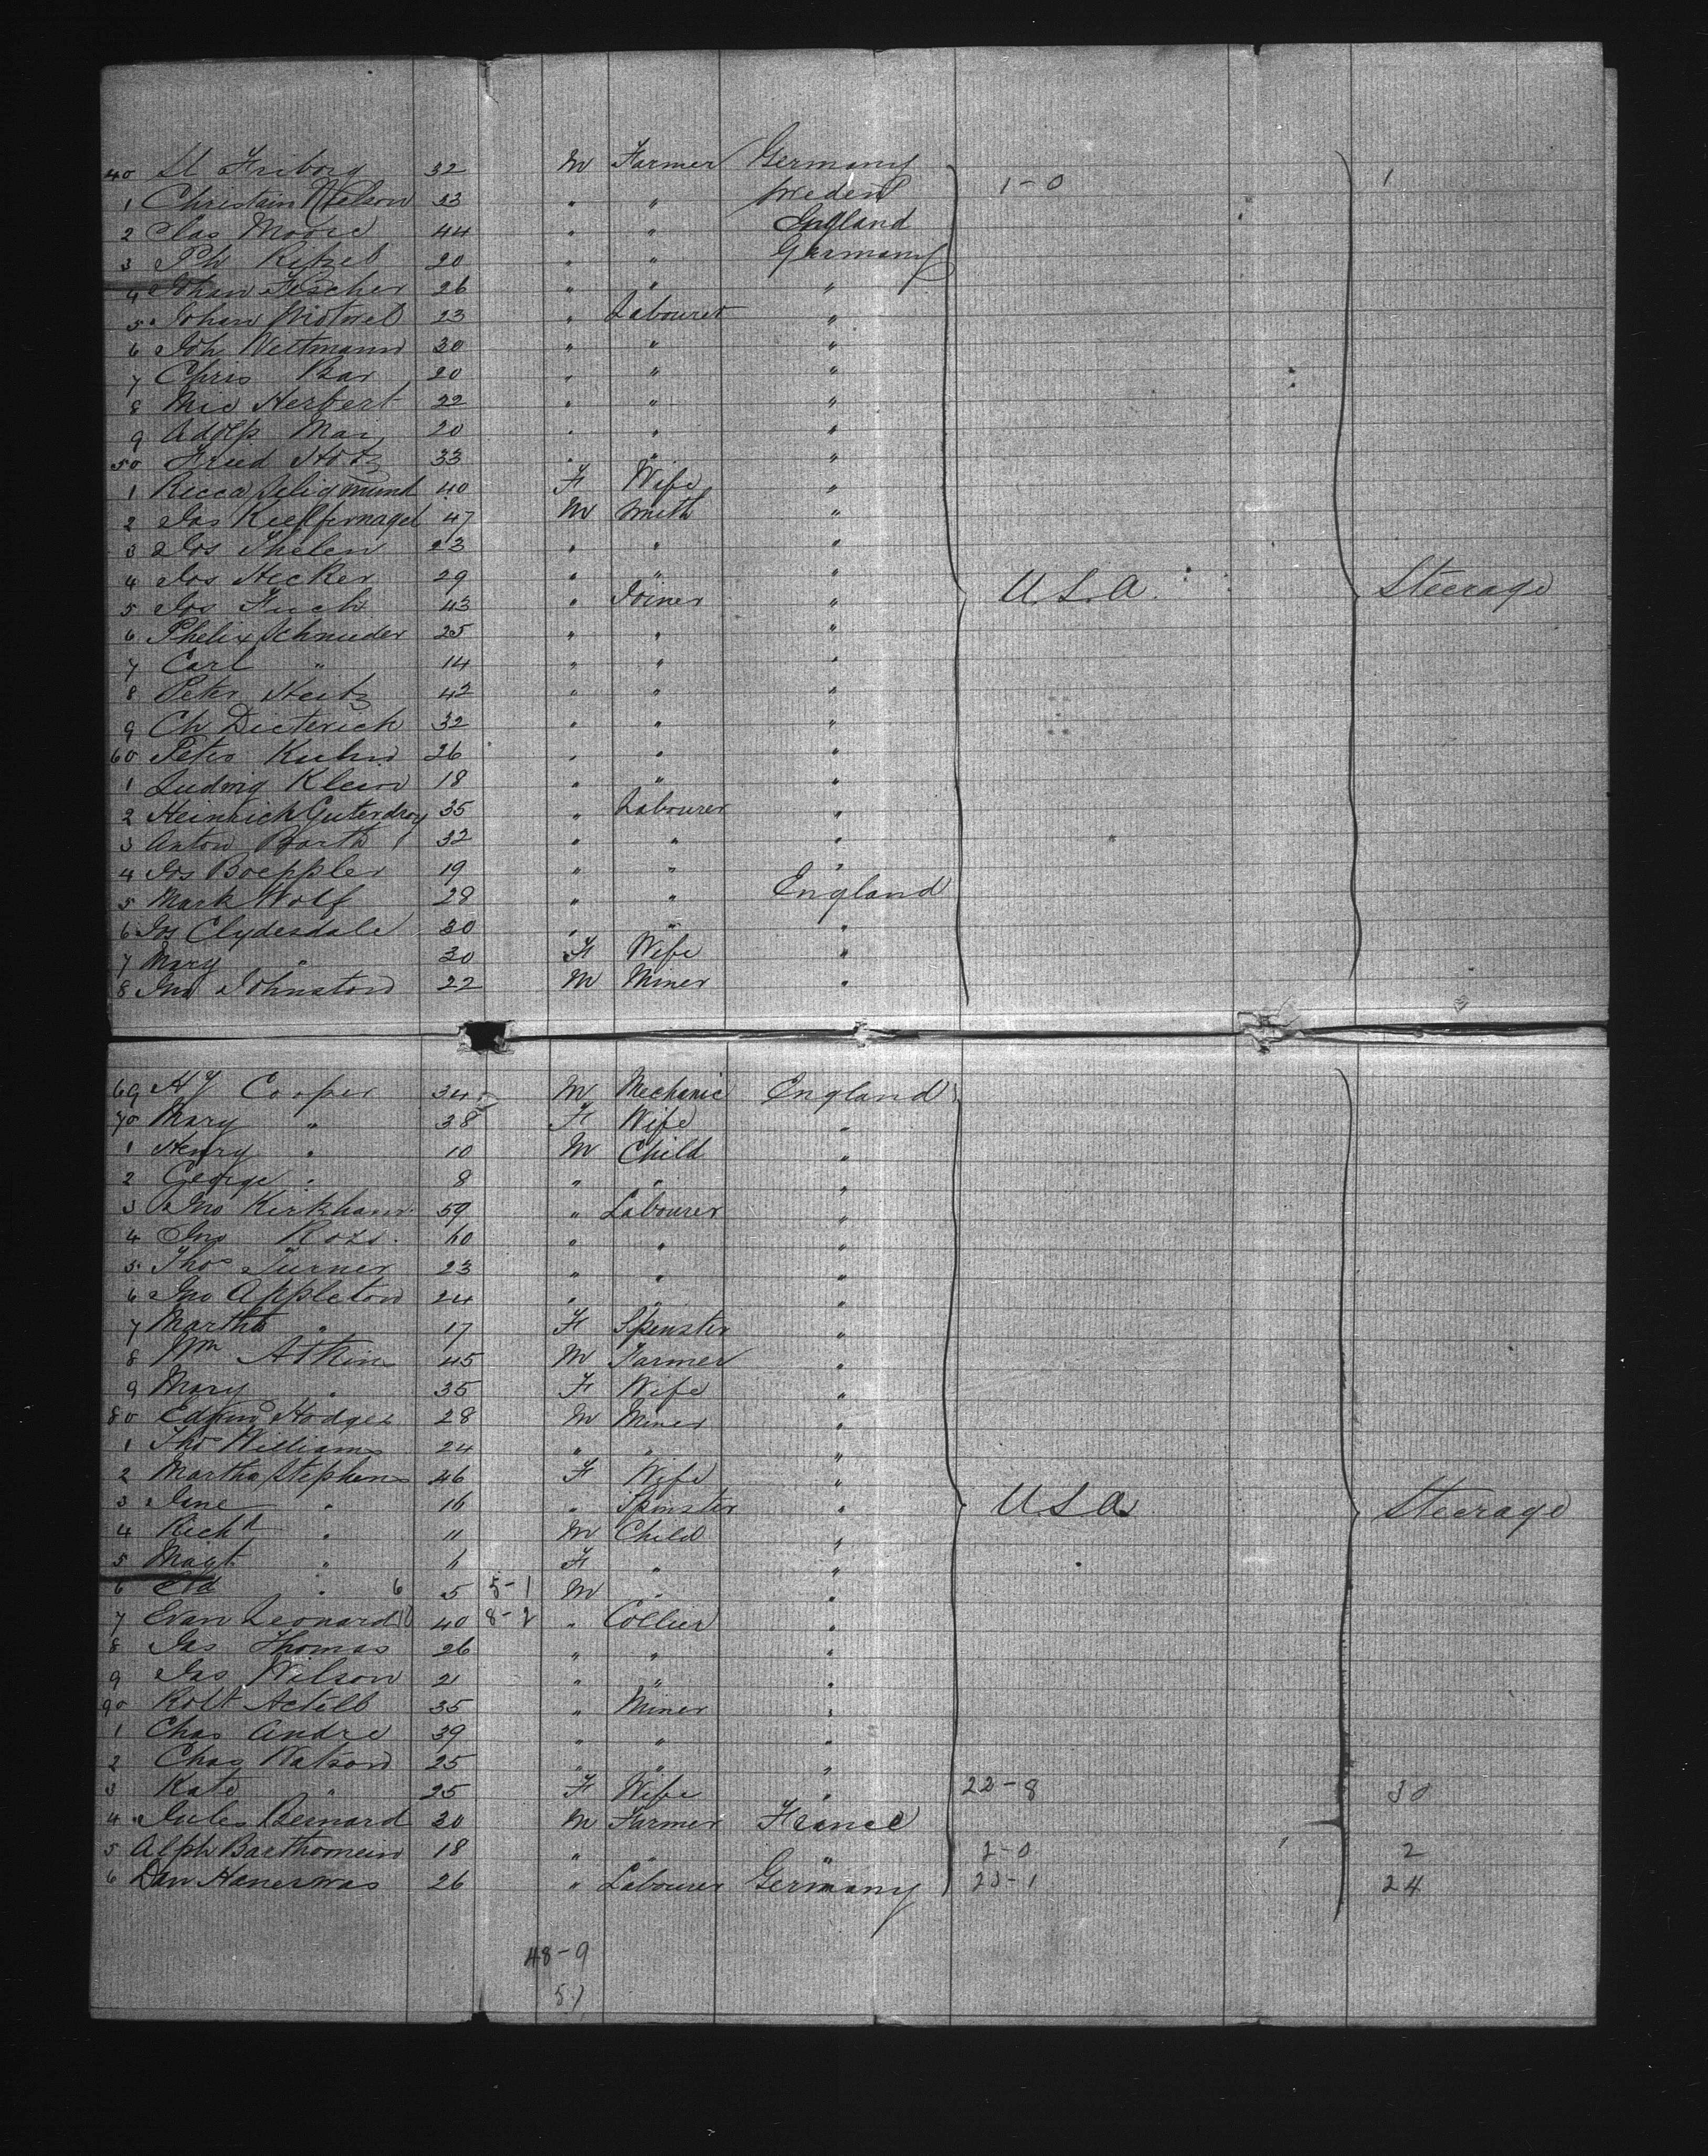 40 St Friborg 32 M Farmer Germany 1-0 1
1 Christain Nelson 23 " " Sweden
2 Clas Moore 44 " " England
3 Ph 20 " " Germany
4 Johan Fischer 26 " " "
5 Johan 23 " Labourer "
6 Joh Wettmann 30 " " "
7 Chris Bar 20 " " "
8 Mic Herbert 22 " " "
9 Adolp Mai 20 " " "
50 Fried Hotz 33 " " "
1 Recca Seligmund 40 F Wife "
2 Jas Kieffernagel 47 M Smith "
3 Jos Thelen 23 " " "
4 Jos Hecker 29 " " "
5 Jos Fuch 43 " Joiner " U.S.A. Steerage
6 Phelix Schnieder 25 " " "
7 Carl " 14 " " "
8 Peter Heitz 42 " " "
9 Ch Dieterich 32 " " "
60 Peter Kuhn 26 " " "
1 Ludwig Klein 18 " " "
2 Heinrich 35 " Labourer "
3 Anton Barth 32 " " "
4 Jos Boeppler 19 " " "
5 Mark Wolf 28 " " England
6 Jos Clydesdale 30 " " "
7 Mary " 30 F Wife "
8 Jno Johnston 22 M Miner "
69 Hy Cooper 34 M Mechanic England
70 Mary " 38 F Wife "
1 Henry " 10 M Child "
2 George " 8 " " "
3 Jno Kirkham 59 " Labourer "
4 Jno Ross 60 " " "
5 Thos Turner 23 " " "
6 Jno Appleton 24 " " "
7 Martha " 17 F Spinster "
8 Wm Atkin 45 M Farmer "
9 Mary " 35 F Wife "
80 Edwin Hodges 28 M Miner "
1 Thos Williams 24 " " "
2 Martha Stephens 46 F Wife "
3 Jane " 16 " Spinster " U.S.A. Steerage
4 Richd " 11 M Child "
5 Magt " 6 F " "
6 " 6 5 5-1 M " "
7 Evan Leonard 10 40 8-2 " Collier "
8 Jas Thomas 26 " " "
9 Jas Wilson 21 " " "
90 Robt 35 " Miner "
1 Chas Andre 39 " " "
2 Chas Watson 25 " " "
3 Kate " 25 F Wife " 22-8 30
4 Jules Bernard 30 M Farmer France
5 Alph 18 " " " 2-0 2
6 Dan 26 " Labourer Germany 23-1 24
48-9
57